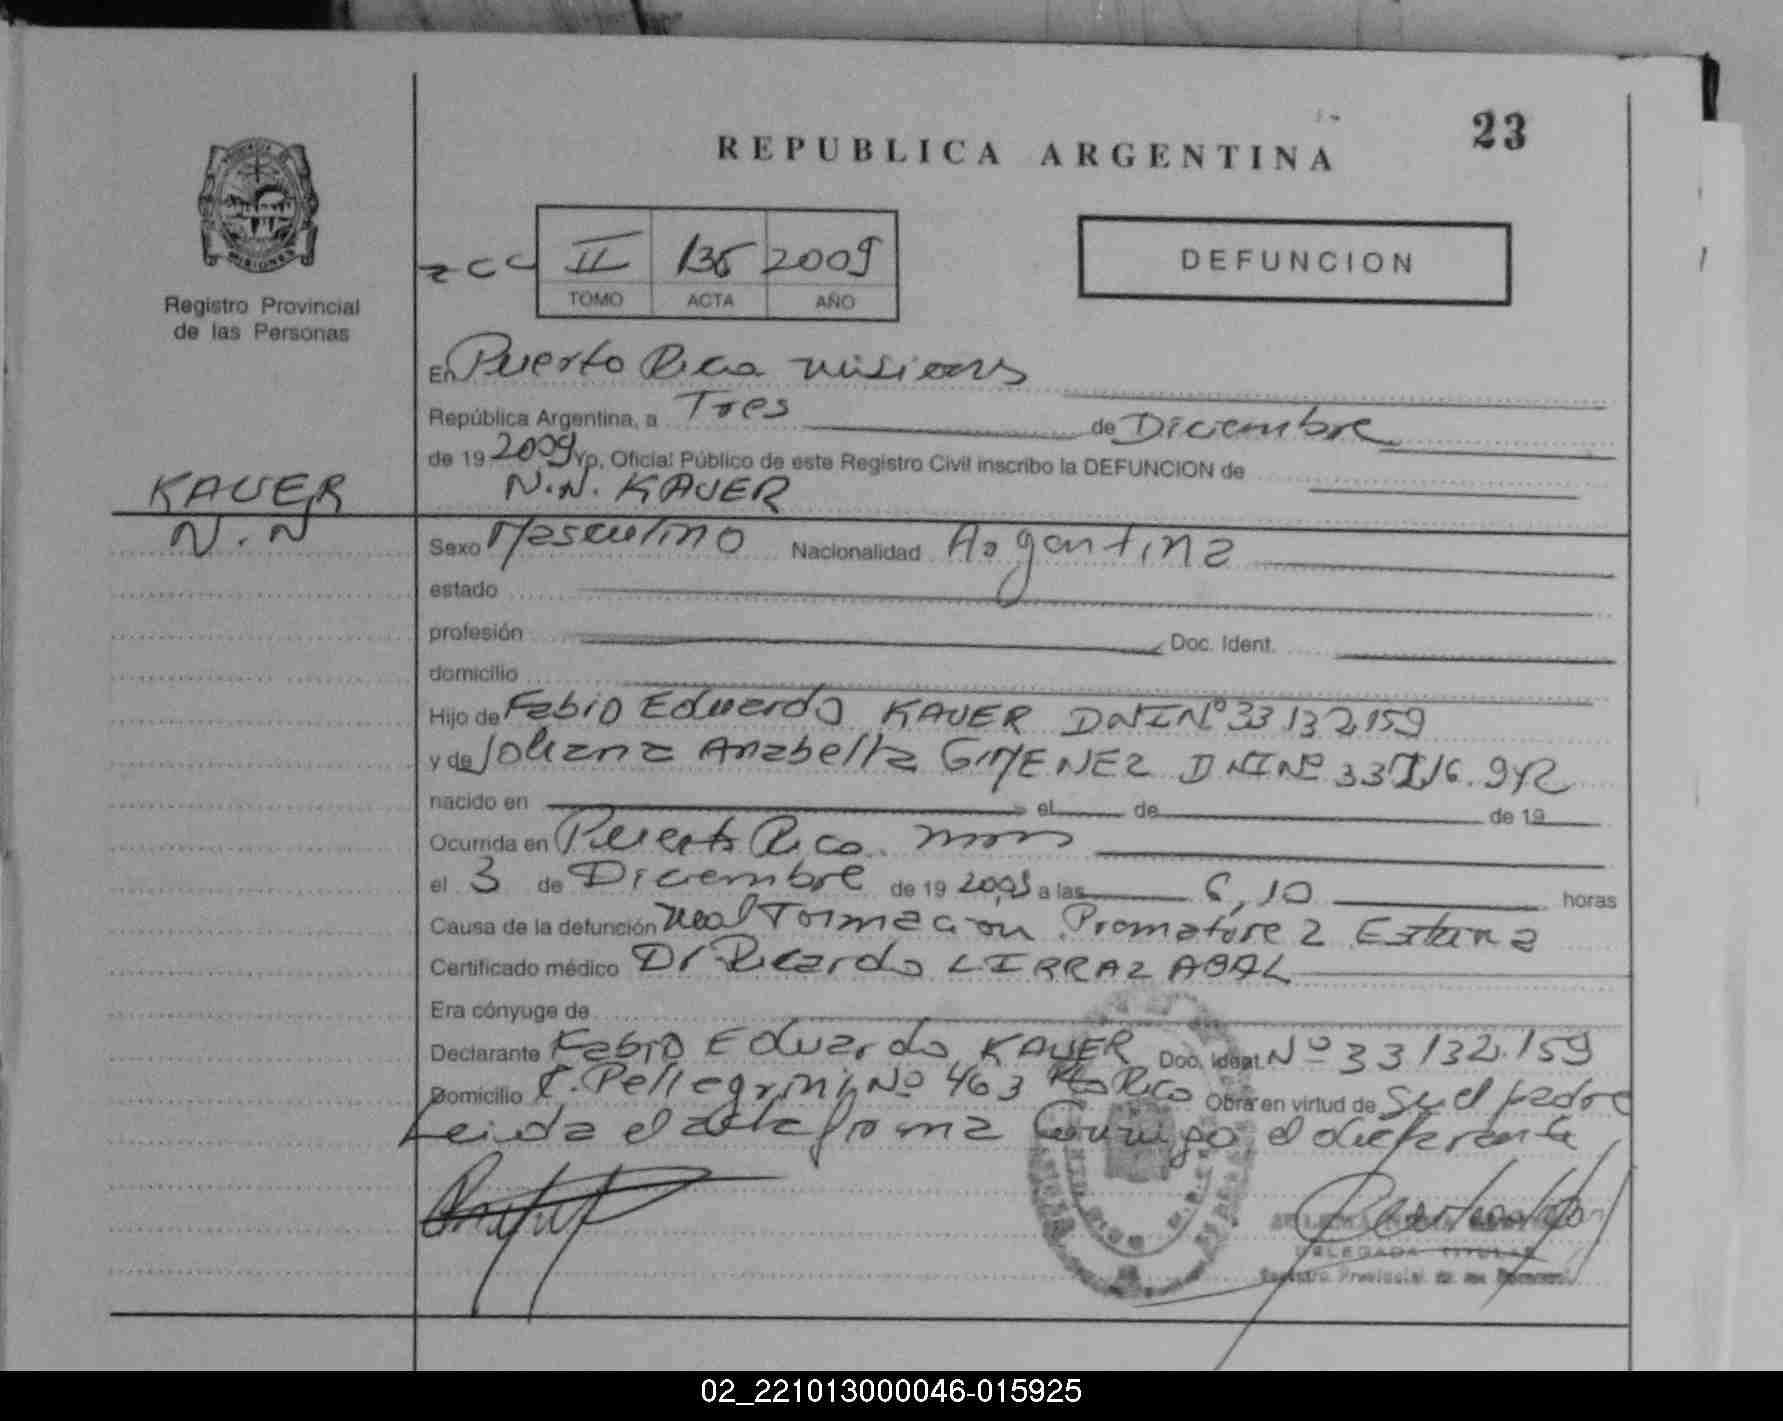 23
REPUBLICA ARGENTINA
DEFUNCION
II 136 2009
TOMO ACTA AÑO
PROVINCIA DE
MISIONES
Registro Provincial
de las Personas
En Puerto Rico Misiones
República Argentina, a Tres de Diciembre
de 19 2009 Yo, Oficial Público de este Registro Civil inscribo la DEFUNCION de
N.N. KAUER
KAUER
N.N
Sexo Masculino Nacionalidad Argentina
estado
profesión Doc. Ident.
domicilio
Hijo de Fabio Eduardo KAUER DNI Nº 33 132.159
y de Johana Anabella GIMENEZ DNI Nº
nacido en el de de 19
Ocurrida en Puerto Rico. Mnes
el 3 de Diciembre de 19 2009 a las 6,10 horas
Causa de la defunción Malformacion Prematurez Extrema
Certificado médico Dr Ricardo LIRRAZABAL
Era cónyuge de
Declarante Fabio Eduardo KAUER Doc. Ident. Nº 33 132.159
Domicilio C. Pellegrini Nº 463 Pto Rico Obra en virtud de Ser el padre
Leida el acta firma Conmigo el declarante
DELEGADA TITULAR
Registro Provincial de las Personas
02_221013000046-015925